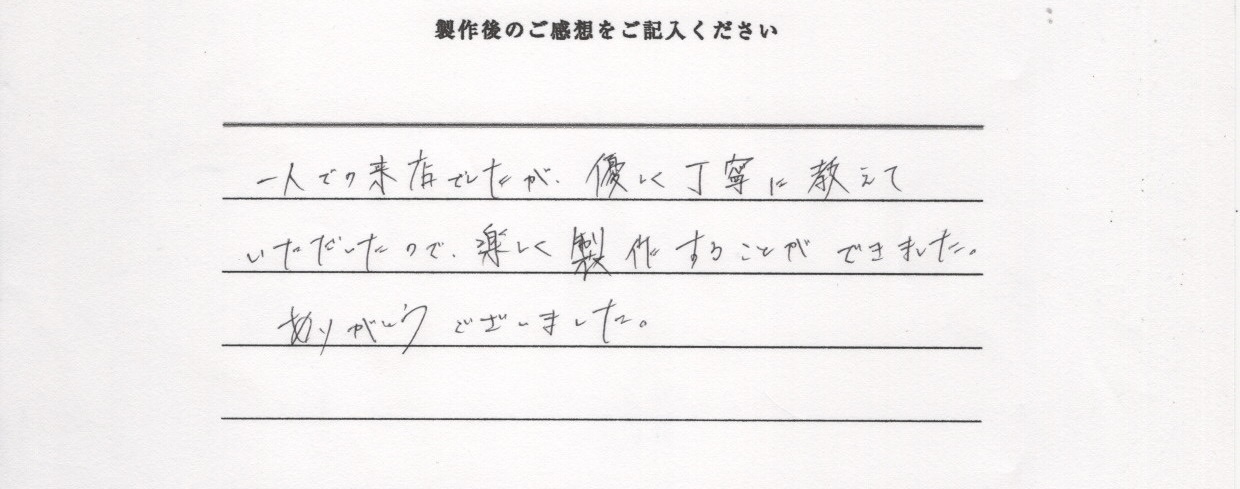 製作後のご感想をご記入ください
一人での来店でしたが、優しく丁寧に教えて
いただいたので、楽しく製作することができました。
ありがとうございました。